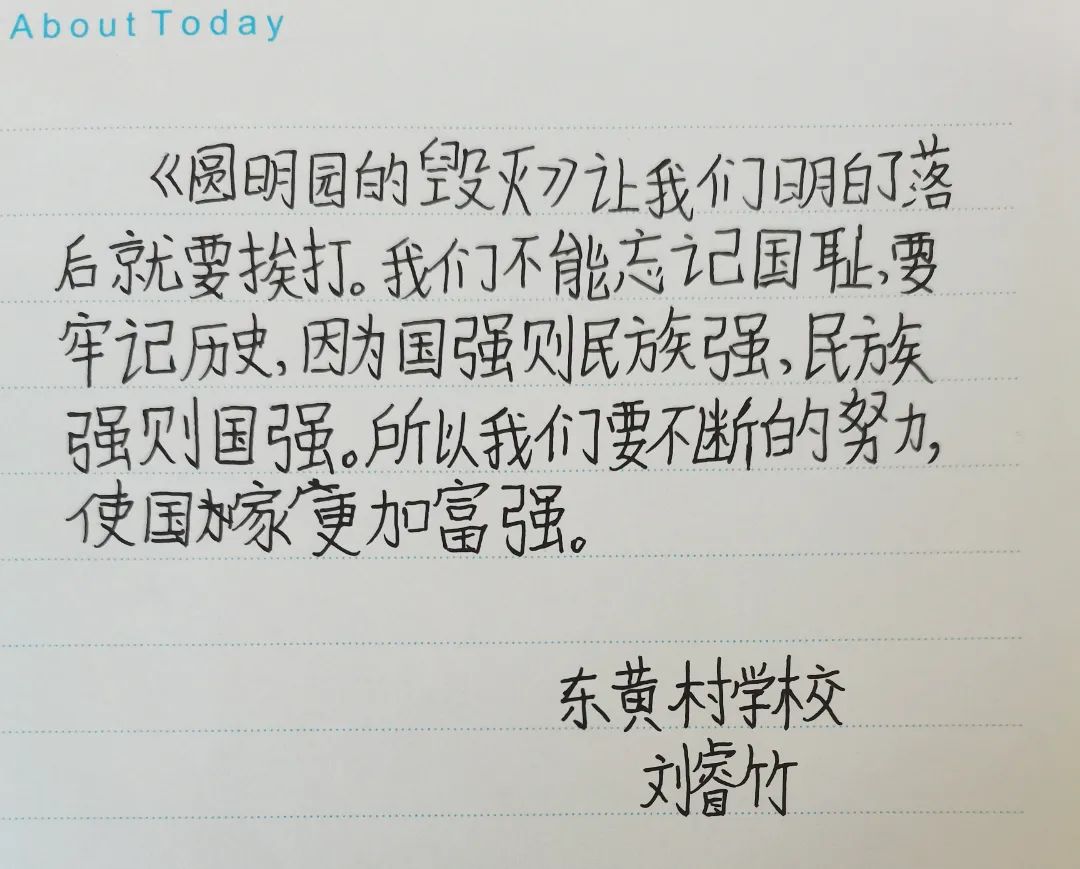 About Today
《圆明园的毁灭》让我们明白了落
后就要挨打。我们不能忘记国耻,要
牢记历史,因为国强则民族强、民族
强则国强。所以我们要不断的努力,
使国家更加富强。
东黄村学校
刘睿竹